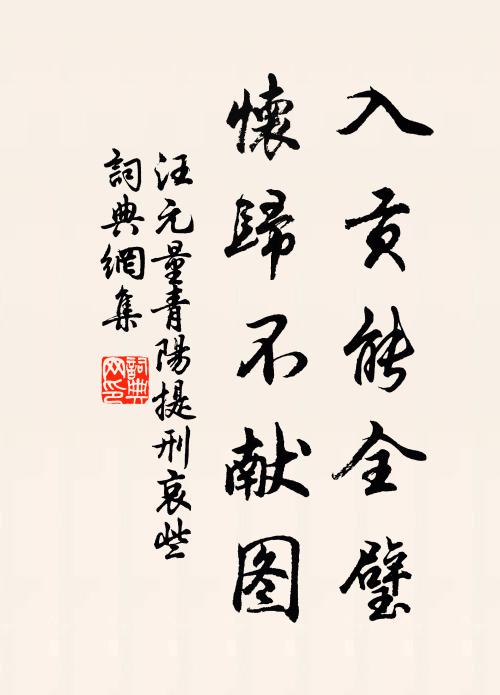 入贡能全璧
懷歸不献图
汪元量青陽提刑哀些
詞典網集
詞典網印